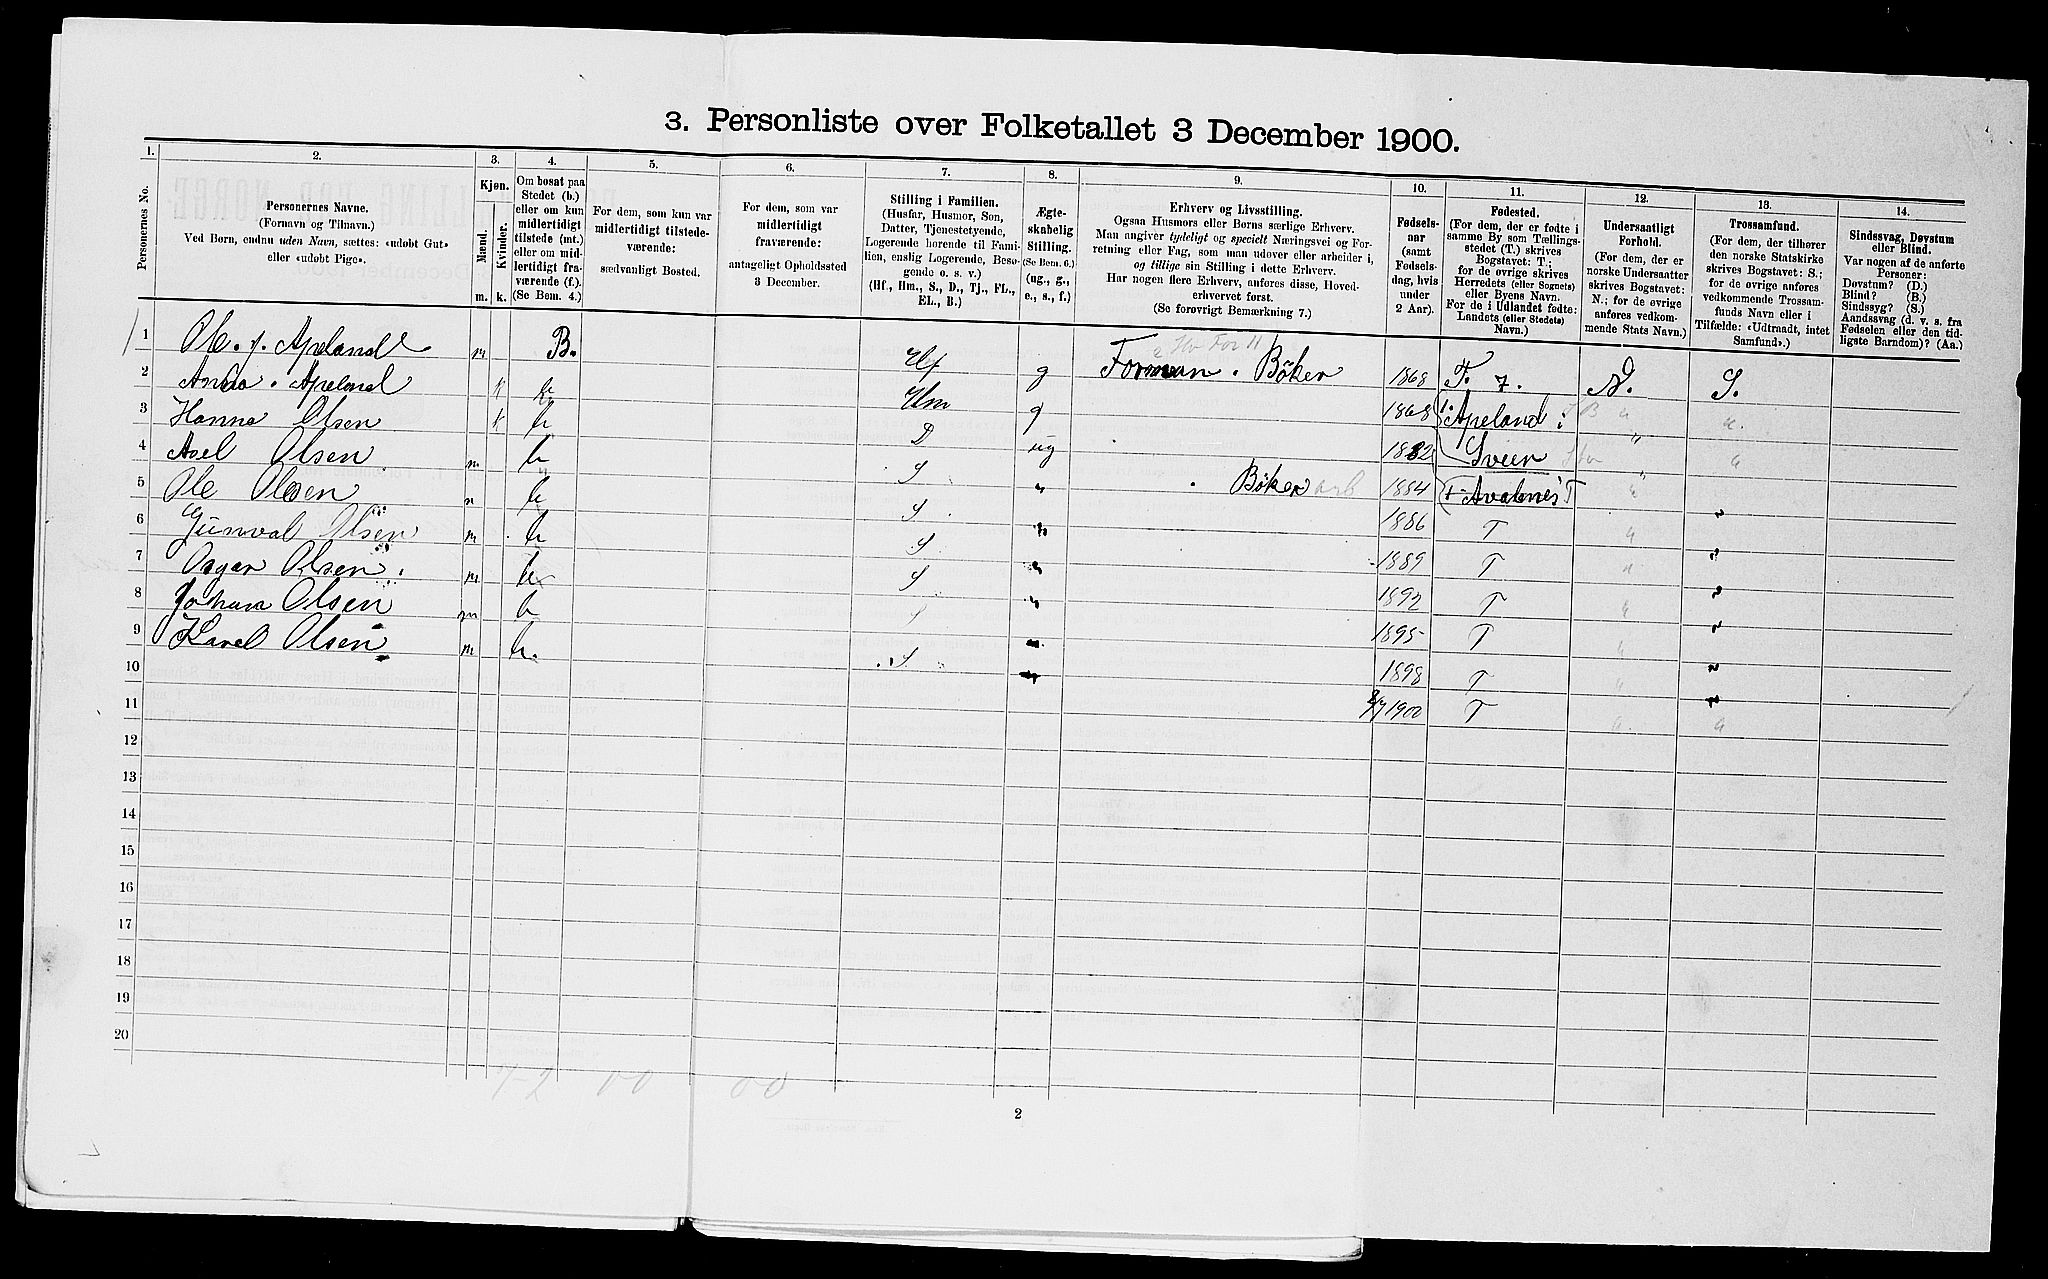 3. Personliste over Folketallet 3 December 1900.
1.
Personernes No.
2.
Personernes Navne.
(Fornavn og Tilnavn.)
Ved Børn, endnu uden Navn, sættes: «udøbt Gut»
eller «udøbt Pige».
3.
Kjøn.
Mænd.
Kvinder.
m. k.
4.
Om bosat paa
Stedet (b.)
eller om kun
midlertidigt
tilstede (mt.)
eller om mid-
lertidigt fra-
værende (f.).
(Se Bem. 4.)
5.
For dem, som kun var
midlertidigt tilstede-
værende:
sædvanligt Bosted.
6.
For dem, som var
midlertidigt
fraværende:
antageligt Opholdssted
3 December.
7.
Stilling i Familien.
(Husfar, Husmor, Søn,
Datter, Tjenestetyende,
Logerende hørende til Fami-
lien, enslig Logerende, Besø-
gende o. s. v.)
(Hf., Hm., S., D., Tj., FL.,
EL., B.)
8.
Ægte-
skabelig
Stilling.
(Se Bem. 6.)
(ug., g.,
e., s., f.)
9.
Erhverv og Livsstilling.
Ogsaa Husmors eller Børns særlige Erhverv.
Man angiver tydeligt og specielt Næringsvei og For-
retning eller Fag, som man udøver eller arbeider i,
og tillige sin Stilling i dette Erhverv.
Har nogen flere Erhverv, anføres disse, Hoved-
erhvervet først.
(Se forøvrigt Bemærkning 7.)
10.
Fødsels-
aar
(samt
Fødsels-
dag, hvis
under
2 Aar).
11.
Fødested.
(For dem, der er fødte i
samme By som Tællings-
stedet (T.) skrives
Bogstavet: T.;
for de øvrige skrives
Herredets (eller Sognets)
eller Byens Navn.
For de i Udlandet fødte:
Landets (eller Stedets)
Navn.)
12.
Undersaatligt
Forhold.
(For dem, der er
norske Undersaatter
skrives Bogstavet:
N.; for de øvrige
anføres vedkom-
mende Stats Navn.)
13.
Trossamfund.
(For dem, der tilhører
den norske Statskirke
skrives Bogstavet: S.;
for de øvrige anføres
vedkommende Trossam-
funds Navn eller i
Tilfælde: «Udtraadt, intet
Samfund».)
14.
Sindssvag, Døvstum
eller Blind.
Var nogen af de anførte
Personer:
Døvstum? (D.)
Blind? (B.)
Sindssyg? (S.)
Aandssvag (d. v. s. fra
Fødselen eller den tid-
ligste Barndom)? (Aa.)
1 Ole. J. Apeland m B. Hf g Forman . Böker 1868 T. N. S.
2 Anna . Apeland k b Hm g 1868 Apeland i " "
3 Hanna Olsen k b D ug 1882 Sveen " "
4 Axel Olsen m b S " Böker arb 1884 Avalnes T "
5 Ole Olsen m b S " 1886 T " "
6 Gunval Olsen m b S " 1889 T " "
7 Osgar Olsen m b S " 1892 T " "
8 Johan Olsen m b S " 1895 T " "
9 Karel Olsen m b. S " 1898 T " "
10
11 1900 T " "
12
13
14
15
16
17
18
19
20
7-2 00 00
2